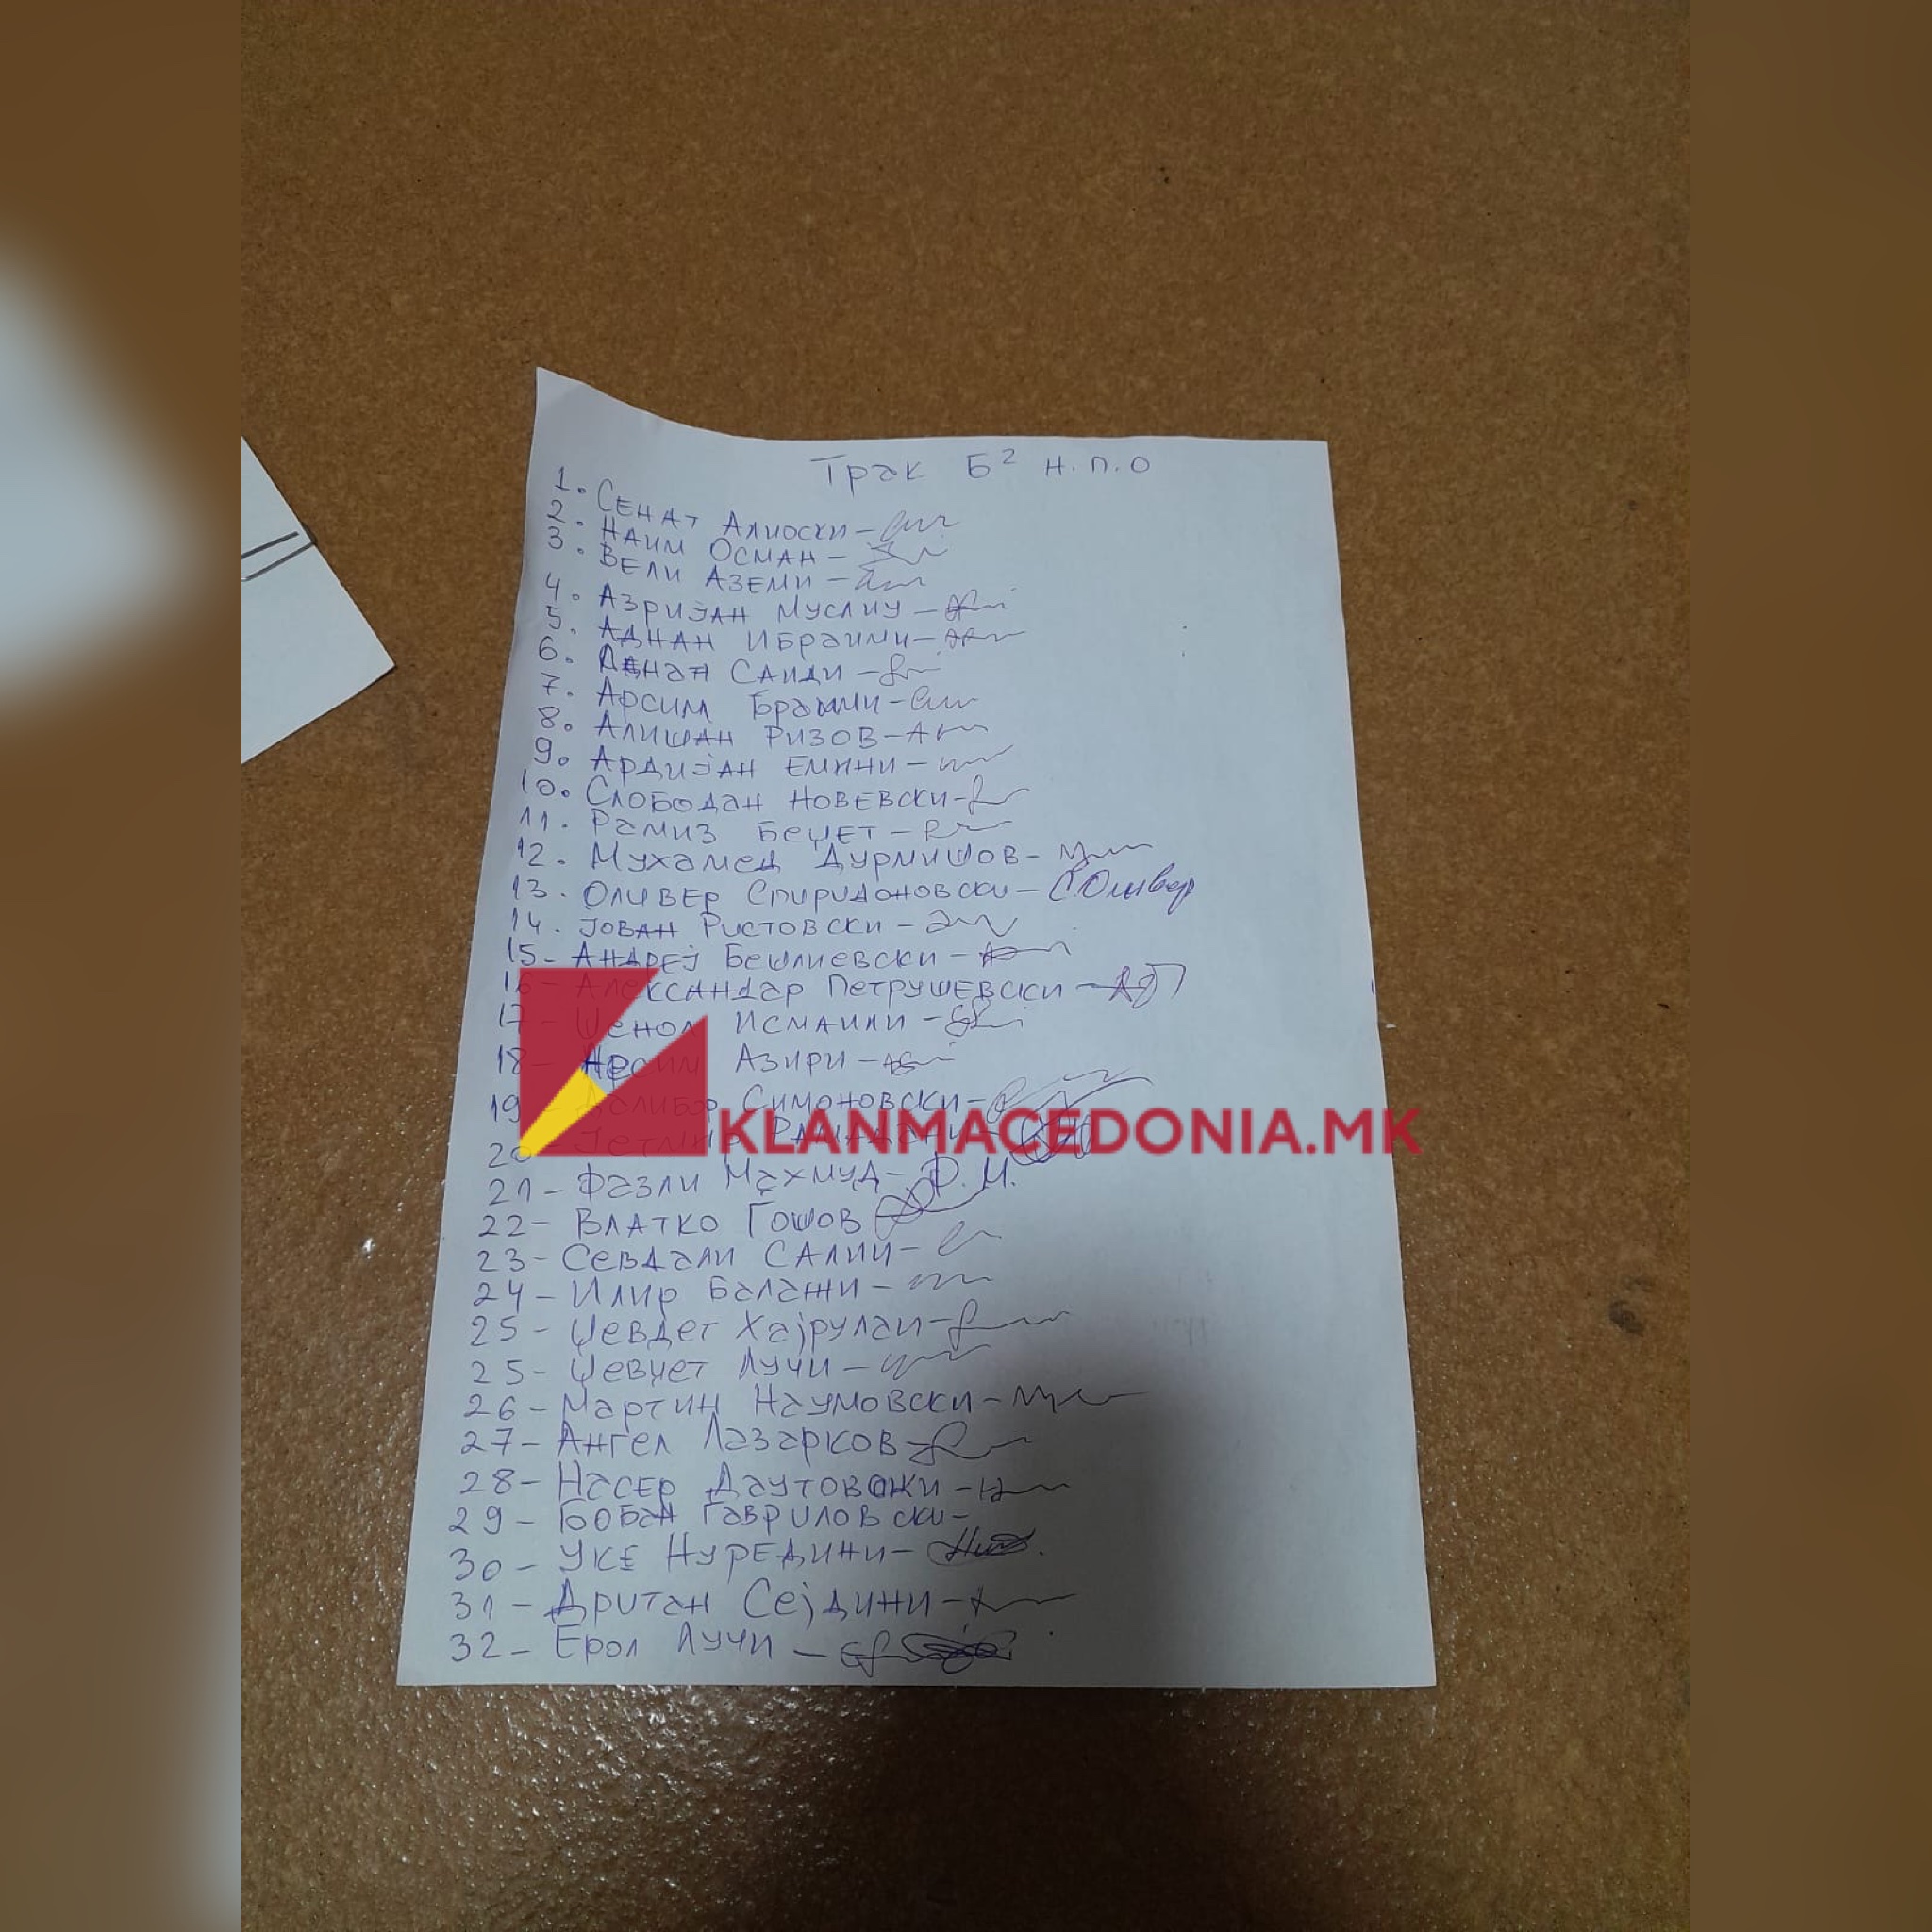 Трак Б² Н.П.О
1. СЕНАТ АЛИОСКИ -
2. НАИМ ОСМАН -
3. ВЕЛИ АЗЕМИ -
4. АЗРИЈАН МУСЛИУ -
5. АДНАН ИБРАИМИ -
6. САИДИ -
7. АРСИМ -
8. АЛИШАН РИЗОВ -
9. АРДИЈАН ЕМИНИ -
10. СЛОБОДАН НОВЕВСКИ -
11. РАМИЗ БЕЏЕТ -
12. МУХАМЕД ДУРМИШОВ -
13. ОЛИВЕР СПИРИДОНОВСКИ - С.Оливер
14. ЈОВАН РИСТОВСКИ -
15 - АНДРЕЈ БЕШЛИЕВСКИ -
16 - АЛЕКСАНДАР ПЕТРУШЕВСКИ -
17 - ШЕНОЛ ИСМАИЛИ -
18 - АЗИРИ -
19 - ДАЛИБОР СИМОНОВСКИ -
20
KLANMACEDONIA.MK
21 - ФАЗЛИ МАХМУД - Ф.М.
22 - ВЛАТКО ГОШОВ
23 - СЕВДАЛИ САЛИИ -
24 - ИЛИР БАЛАЖИ -
25 - ЏЕВДЕТ ХАЈРУЛАИ -
25 - ЏЕВЏЕТ ЛУЧИ -
26 - МАРТИН НАУМОВСКИ -
27 - АНГЕЛ ЛАЗАРКОВ -
28 - НАСЕР -
29 - БОБАН ГАВРИЛОВСКИ -
30 - УКЕ НУРЕДИНИ -
31 - ДРИТАН СЕЈДИНИ -
32 - ЕРОЛ ЛУЧИ -